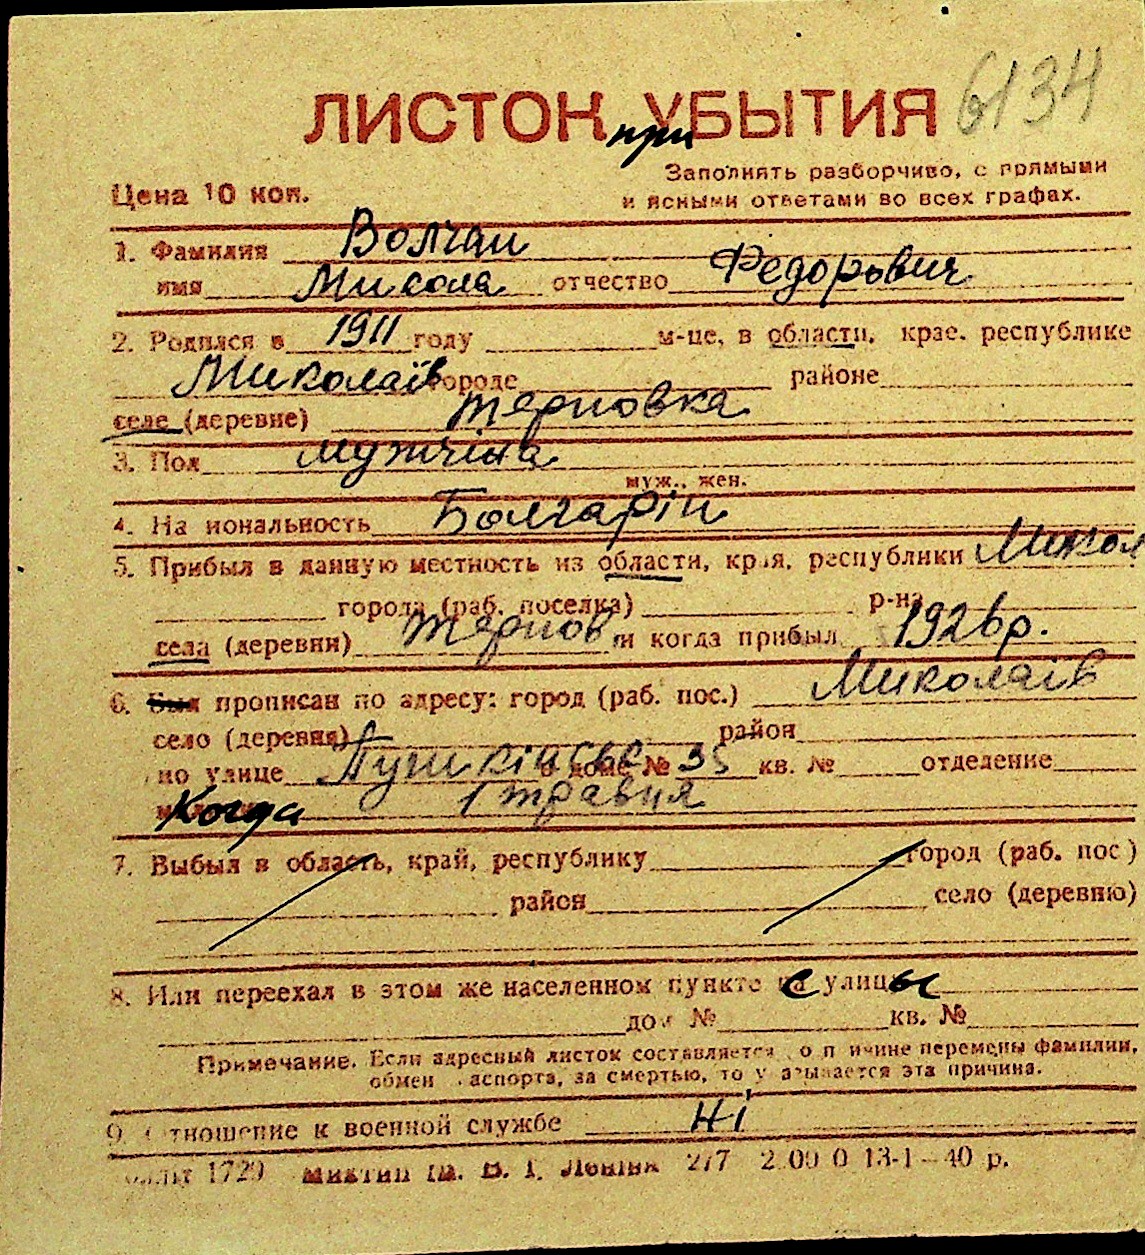 6134
ЛИСТОК при УБЫТИЯ
Заполнять разборчиво, с прямыми
Цена 10 коп. и ясными ответами во всех графах.
1. Фамилия Волчан
имя Микола отчество Федорович
2. Родился в 1911 году м-це, в области, крае, республике
Миколаїв городе районе
селе (деревне) Терновка
3. Пол мужчіна
муж., жен.
4. На иональность Болгарін
5. Прибыл в данную местность из области, края, республики Микол
города (раб. поселка) р-на
села (деревни) Тернов. и когда прибыл 1926 р.
6. Был прописан по адресу: город (раб. пос.) Миколаїв
село (деревня) район
по улице Пушкінське в доме № 35 кв. № отделение
Когда 1 травня
7. Выбыл в область, край, республику город (раб. пос)
район село (деревню)
8. Или переехал в этом же населенном пункте с улицы
дом № кв. №
Примечание. Если адресный листок составляется по п ичине перемены фамилии,
обмен аспорта, за смертью, то указывается эта причина.
9. Отношение к военной службе Ні
1729 им. В. І. Леніна 277 13-1—40 р.